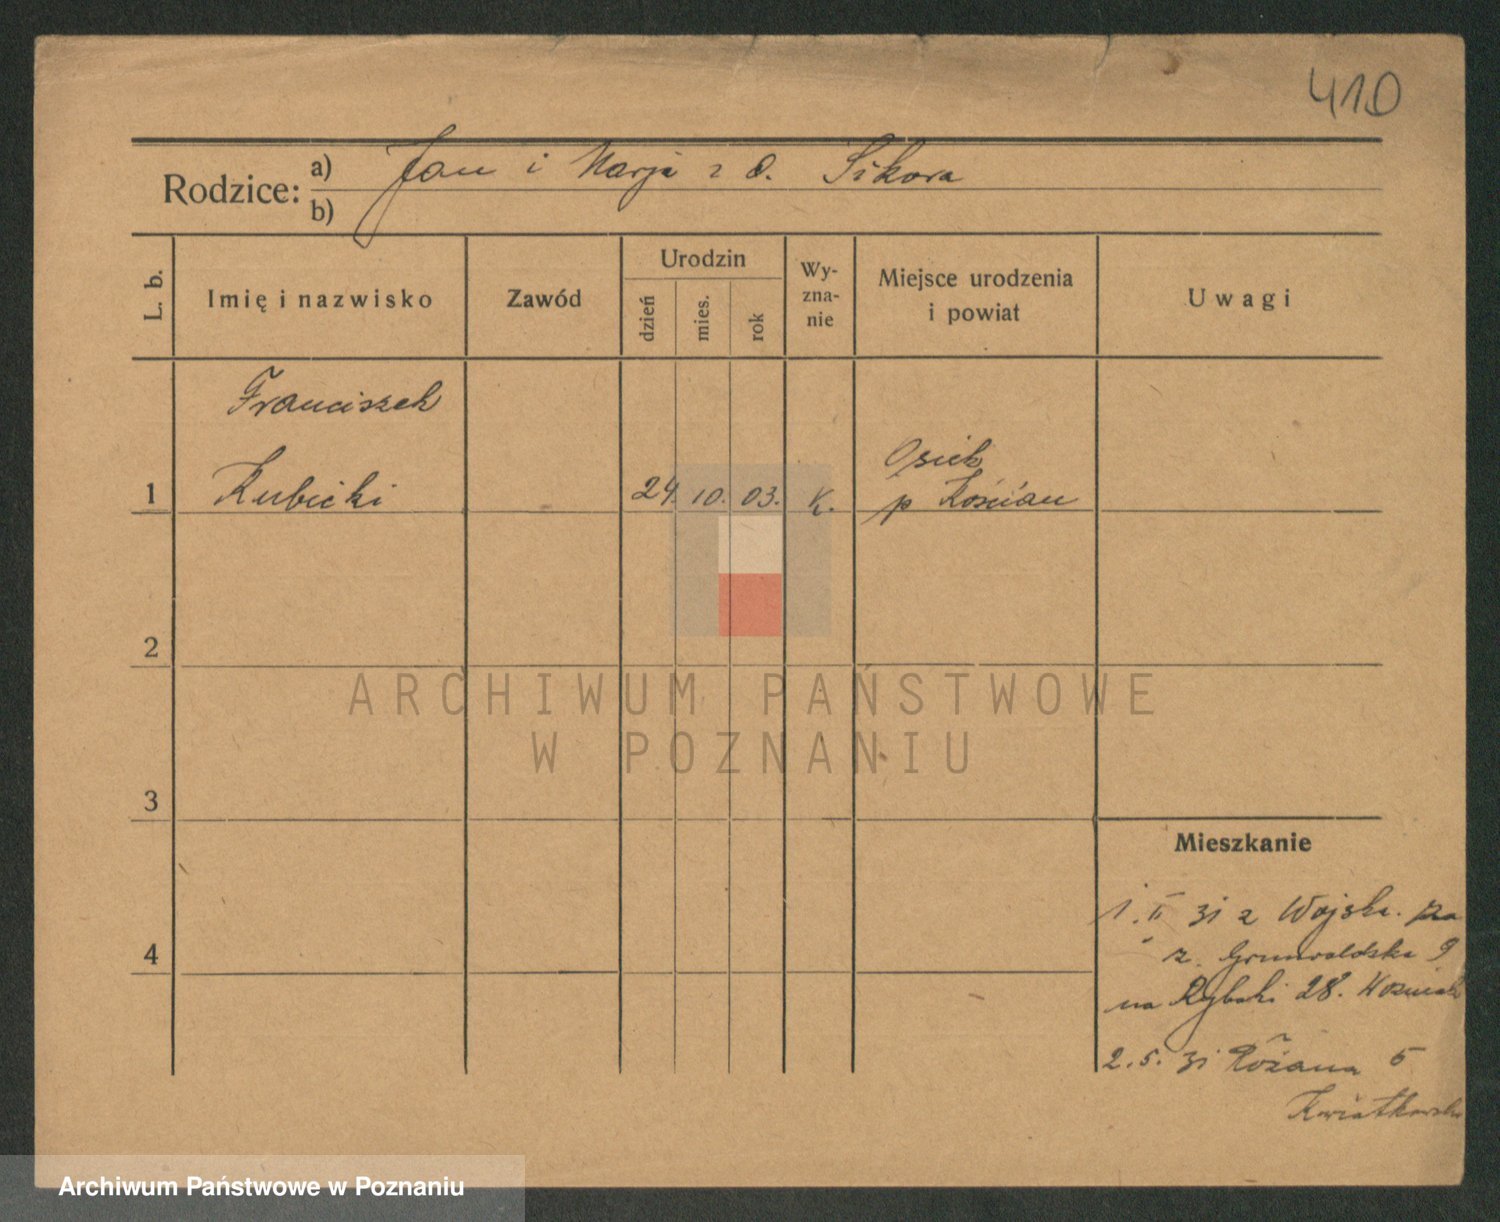 410
Rodzice: a) Jan i Marja z d. Sikora
b)
L. b.
Imię i nazwisko
Zawód
Urodzin
dzień
mies.
rok
Wy-
zna-
nie
Miejsce urodzenia
i powiat
Uwagi
Franciszek
1 Kubicki 24. 10. 03. K.
Osiek
p Kościan
2
3
4
ARCHIWUM PAŃSTWOWE
W POZNANIU
Mieszkanie
1. II 31 z Wojska.
z. Grunwaldzka 9
na Rybaki 28. Woźniak
2. 5. 31 Różana 5
Kwiatkowski
Archiwum Państwowe w Poznaniu